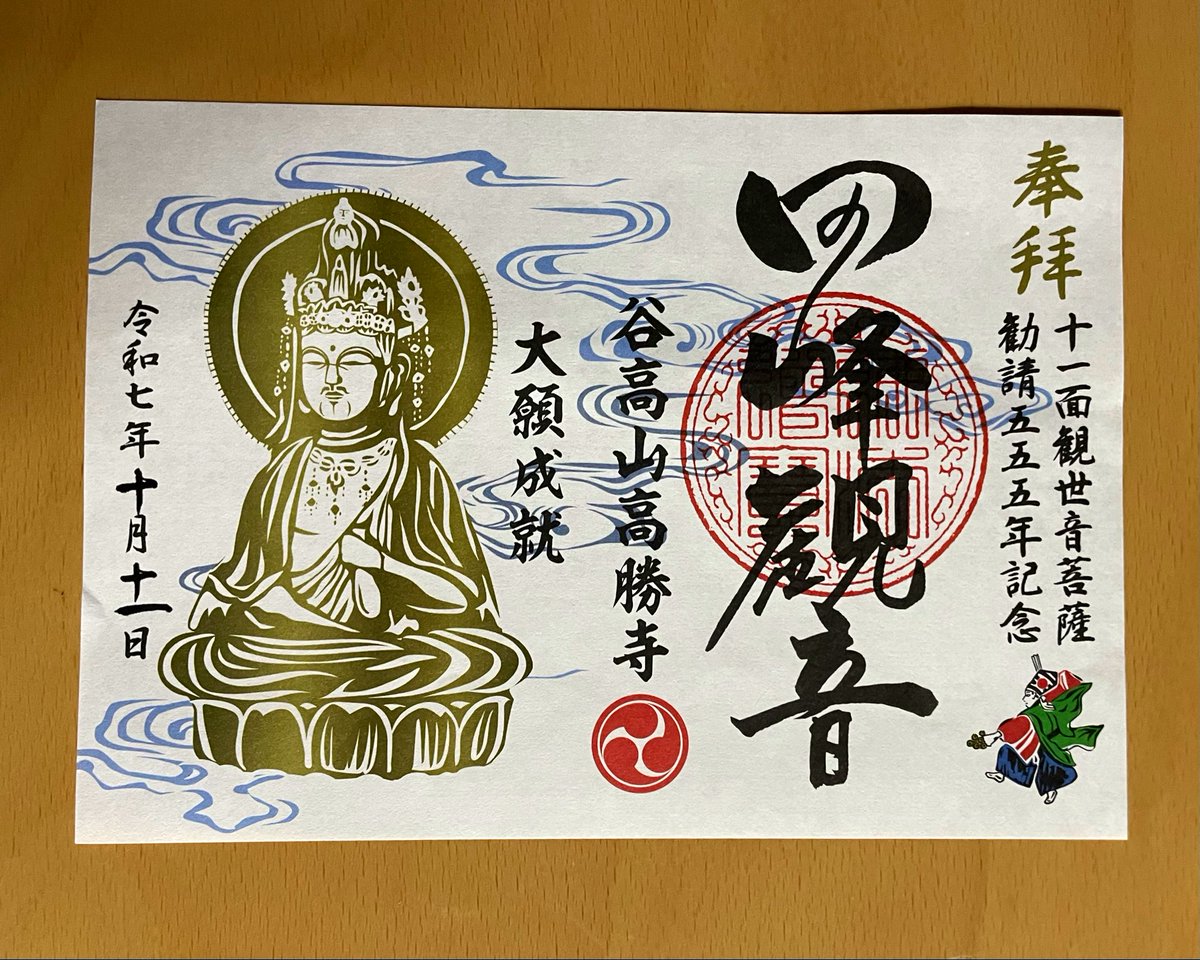 奉拝
十一面観世音菩薩
勧請五五五年記念
四峰觀音
谷高山高勝寺
大願成就
令和七年十月十一日